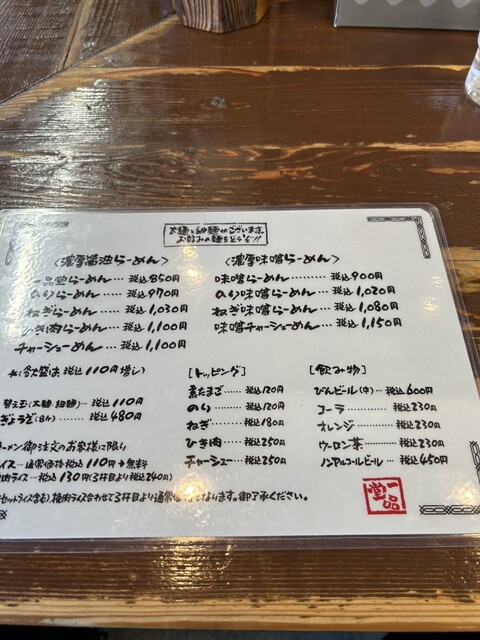 太麺と細麺がございます。
お好みの麺をどうぞ!!
<濃厚醤油らーめん>
一品堂らーめん … 税込850円
のりらーめん … 税込970円
ねぎらーめん … 税込1,030円
ひき肉らーめん … 税込1,100円
チャーシューめん … 税込1,100円
*(各大盛は 税込110円増し)
替え玉(太麺・細麺)… 税込110円
ぎょうざ(5ヶ)…… 税込480円
<濃厚味噌らーめん>
味噌らーめん …… 税込900円
のり味噌らーめん … 税込1,020円
ねぎ味噌らーめん … 税込1,080円
味噌チャーシューめん … 税込1,150円
[トッピング]
煮たまご …… 税込120円
のり ……… 税込120円
ねぎ ……… 税込180円
ひき肉 …… 税込250円
チャーシュー … 税込250円
[飲み物]
びんビール(中)… 税込600円
コーラ ……… 税込230円
オレンジ …… 税込230円
ウーロン茶 …… 税込230円
ノンアルコールビール … 税込450円
ラーメン御注文のお客様に限り
イス…通常価格税込110円→無料
肉ライス…税込130円(3杯目より税込240円)
セットライス含む)、挽肉ライス合わせて3杯目より通常価格となります。御了承ください。
一品堂